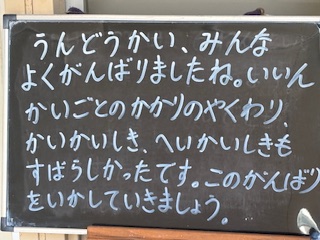 うんどうかい、みんな
よくがんばりましたね。いいん
かいごとのかかりのやくわり、
かいかいしき、へいかいしきも
すばらしかったです。このがんばり
をいかしていきましょう。